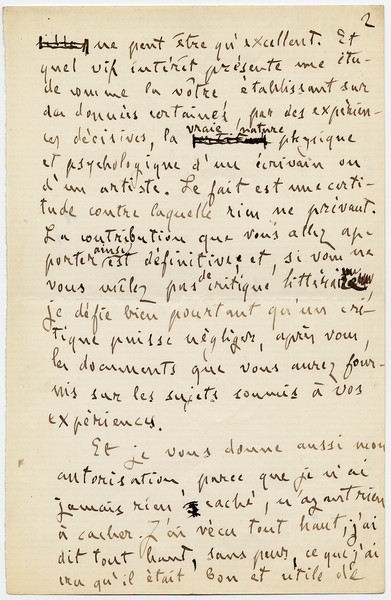 2
ne peut être qu'excellent. Et
quel vif intérêt présente une étu-
de comme la vôtre établissant sur
des données certaines, par des expérien-
ces décisives, la vraie nature physique
et psychologique d'un écrivain ou
d'un artiste. Le fait est une certi-
tude contre laquelle rien ne prévaut.
La contribution que vous allez ap-
porter ainsi est définitive; et, si vous ne
vous mêlez pas de critique littéraire,
je défie bien pourtant qu'un cri-
tique puisse négliger, après vous,
les documents que vous aurez four-
nis sur les sujets soumis à vos
expériences.
Et je vous donne aussi mon
autorisation, parce que je n'ai
jamais rien caché, n'ayant rien
à cacher. J'ai vécu tout haut, j'ai
dit tout haut, sans peur, ce que j'ai
cru qu'il était bon et utile de